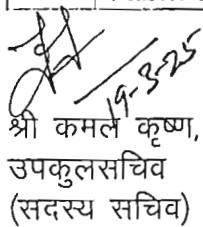 19-3-25
श्री कमल कृष्ण,
उपकुलसचिव
(सदस्य सचिव)